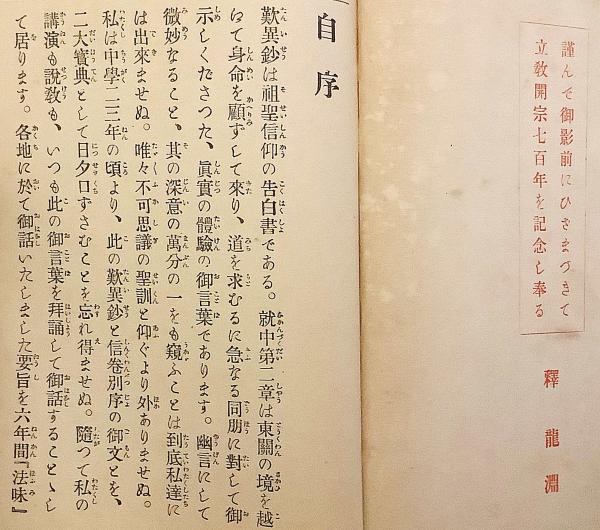 謹んで御影前にひざまづきて
立敎開宗七百年を記念し奉る
釋龍淵
自序
歎異鈔は祖聖信仰の告白書である。就中第二章は東關の境を越
えて身命を顧ずして來り、道を求むるに急なる同朋に對して御
示しくださつた、眞實の體驗の御言葉であります。幽言にして
微妙なること、其の深意の萬分の一をも窺ふことは到底私達に
は出來ませぬ。唯々不可思議の聖訓と仰ぐより外ありませぬ。
私は中學二三年の頃より、此の歎異鈔と信卷別序の御文とを、
二大寶典として日夕口ずさむことを忘れ得ませぬ。隨つて私の
講演も說敎も、いつも此の御言葉を拜誦して御話することゝし
て居ります。各地に於て御話いたしました要旨を六年間『法味』